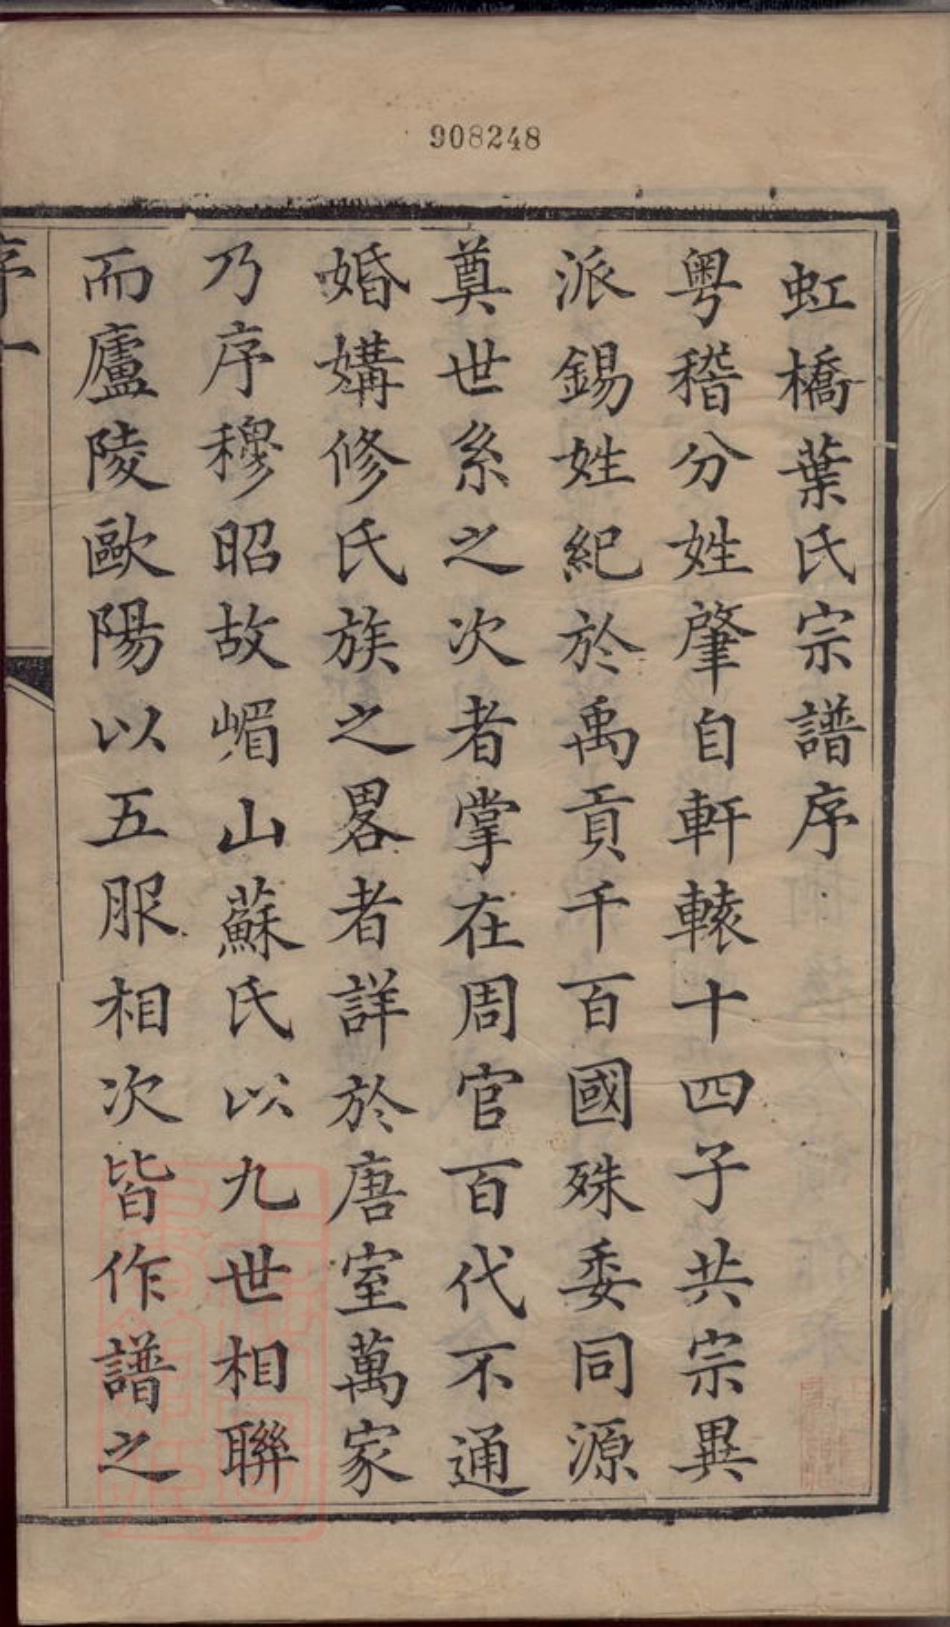 908248
虹橋葉氏宗譜序
粵稽分姓肇自軒轅十四子共宗異
派錫姓紀於禹貢千百國殊委同源
奠世系之次者掌在周官百代不通
婚媾修氏族之畧者詳於唐室萬家
乃序穆昭故嵋山蘇氏以九世相聯
而廬陵歐陽以五服相次皆作譜之
序一